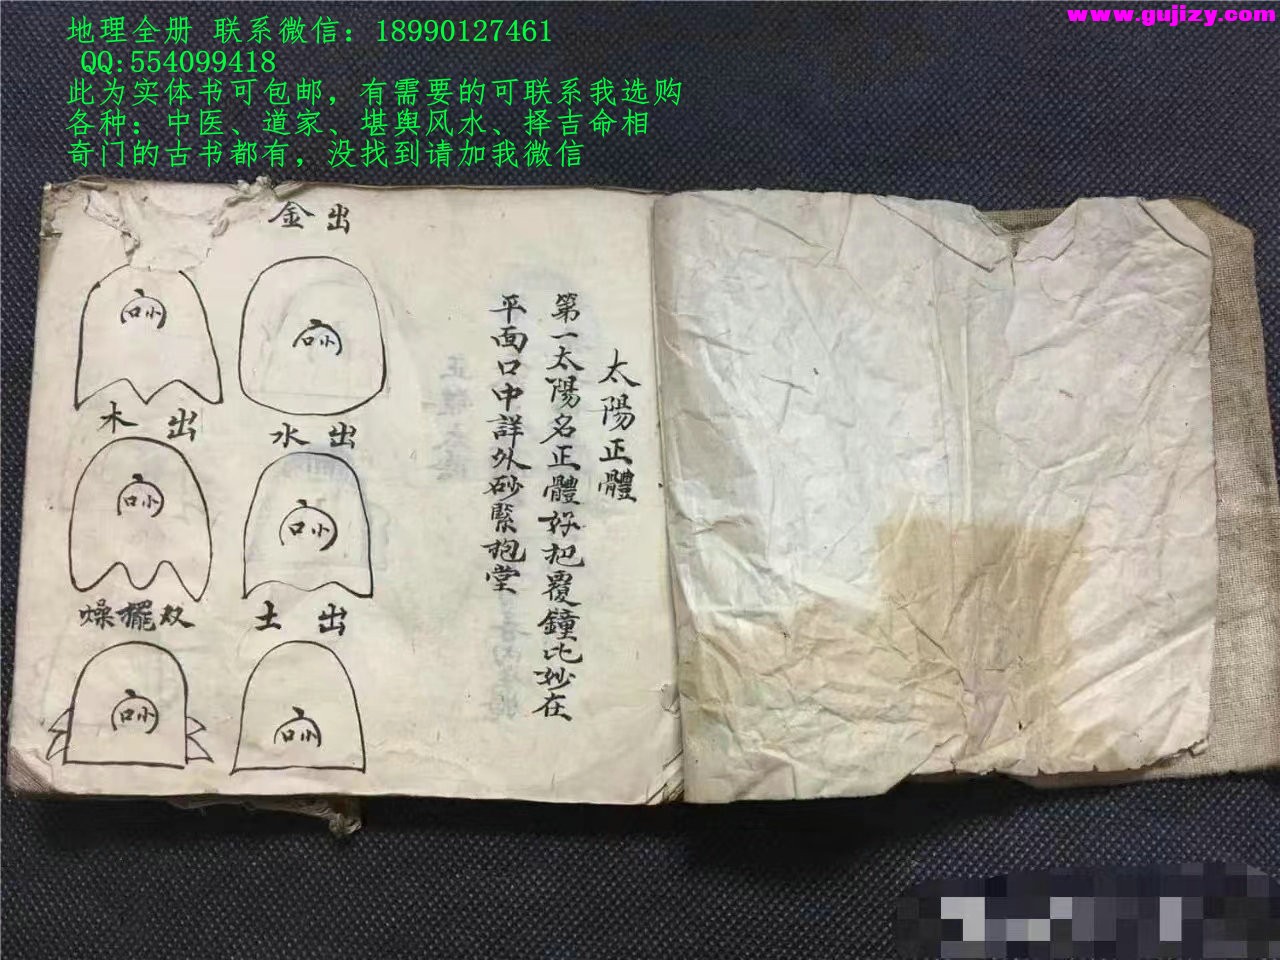 地理全册 联系微信：18990127461
QQ:554099418
此为实体书可包邮，有需要的可联系我选购
各种：中医、道家、堪舆风水、择吉命相
奇门的古书都有，没找到请加我微信
www.gujizy.com
太陽正體
第一太陽名正體好把覆鐘比妙在
平面口中詳外砂緊抱堂
出金
口小
出水
口小
出土
口小
口小
出木
口小
双擺燥
口小